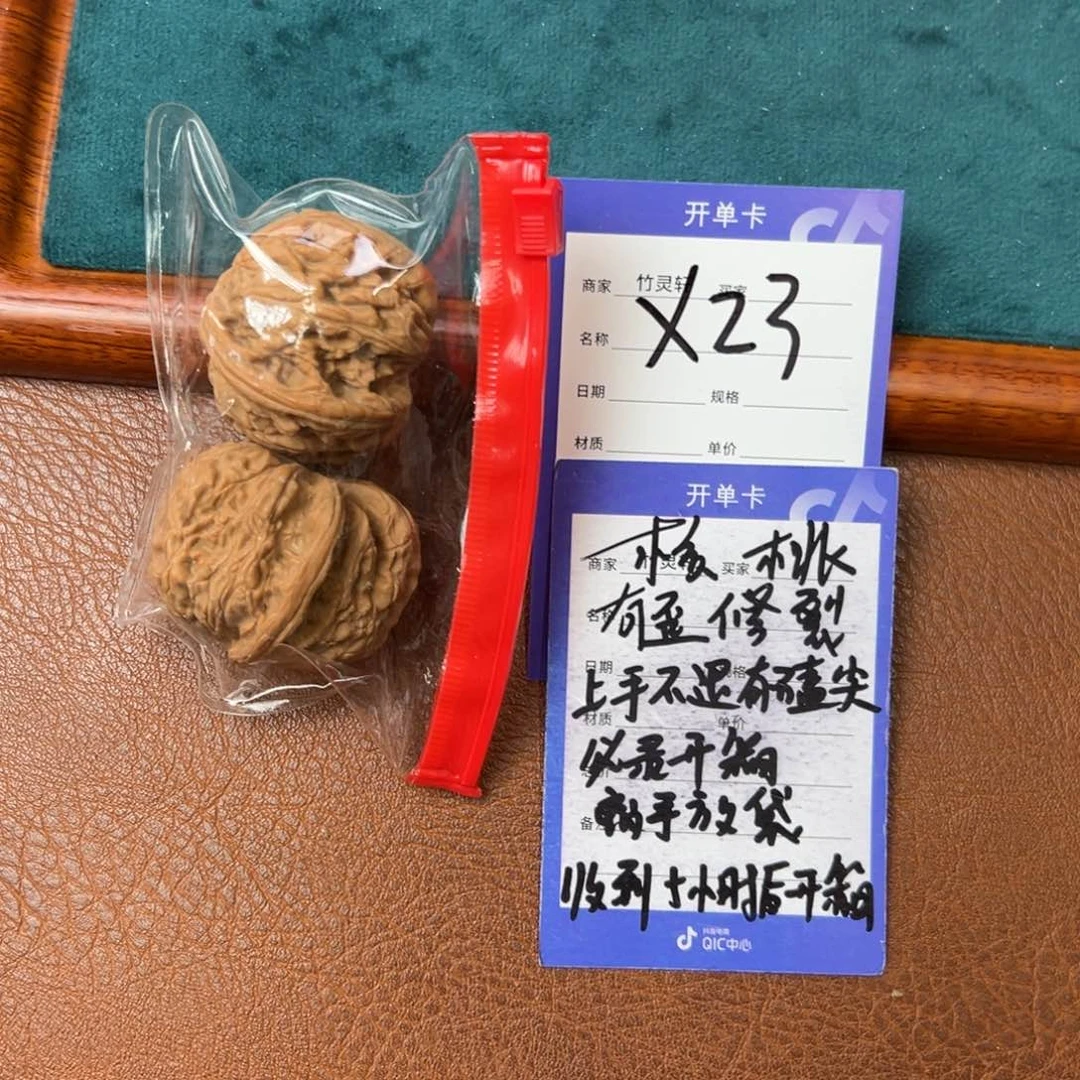 开单卡
商家 竹灵轩 买家
X23
名称
日期 规格
材质 单价
开单卡
商家 买家
核桃
有歪修裂
日期 规格
上手不退有磕尖
材质 单价
必录开箱
手放袋
备
收到 小时后开箱
抖音电商
QIC中心